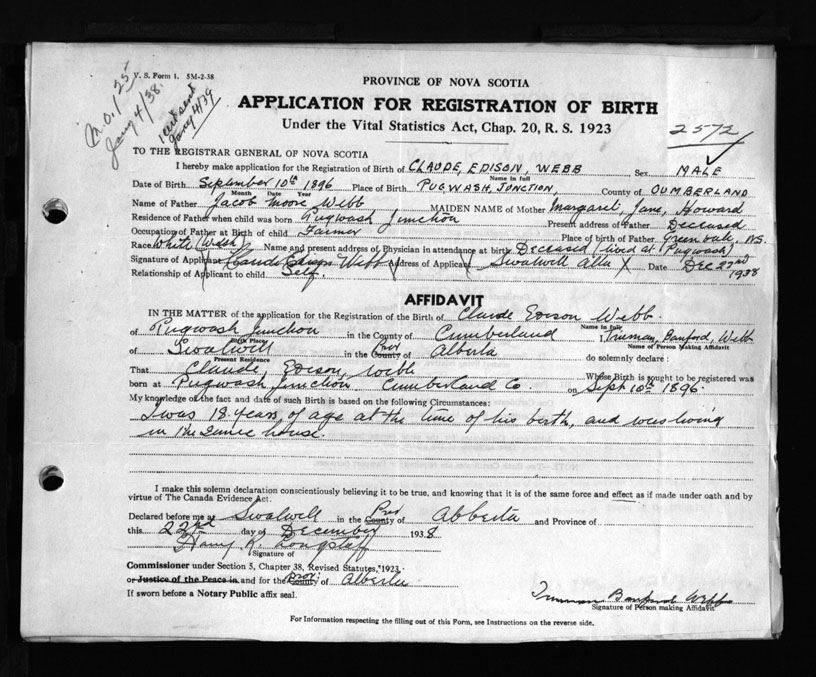 V. S. Form 1. 5M-2-38
M.O. 1.25
Jany 4/38.
Jany 4/39
PROVINCE OF NOVA SCOTIA
APPLICATION FOR REGISTRATION OF BIRTH
Under the Vital Statistics Act, Chap. 20, R. S. 1923
2572
TO THE REGISTRAR GENERAL OF NOVA SCOTIA
I hereby make application for the Registration of Birth of CLAUDE, EDISON, WEBB Sex MALE
Name in full
Date of Birth September 10th 1896 Place of Birth PUGWASH, JUNCTION, County of CUMBERLAND
Month Date Year
Name of Father Jacob Moore Webb MAIDEN NAME of Mother Margaret, Jane, Howard
Residence of Father when child was born Pugwash Junction Present address of Father Deceased
Occupation of Father at Birth of child Farmer Place of birth of Father Green Oak, N.S.
Race White (Welsh) Name and present address of Physician in attendance at birth Deceased (lived at Pugwash)
Signature of Applicant Claude Edison Webb Address of Applicant Swalwell Alta Date Dec 22nd 1938
Relationship of Applicant to child Self.
AFFIDAVIT
IN THE MATTER of the application for the Registration of the Birth of Claude Edison Webb.
Name in full
of Pugwash Junction in the County of Cumberland I, Truman, Banford, Webb
Birth Place Name of Person Making Affidavit
of Swalwell in the County Prov of Alberta do solemnly declare:
Present Residence
That Claude, Edison, Webb Whose Birth is sought to be registered was
born at Pugwash Junction Cumberland Co. on Sept 10th 1896.
My knowledge of the fact and date of such Birth is based on the following Circumstances:
I was 18 years of age at the time of his birth, and was living
in the same house.
I make this solemn declaration conscientiously believing it to be true, and knowing that it is of the same force and effect as if made under oath and by
virtue of The Canada Evidence Act.
Declared before me at Swalwell in the County Prov of Alberta and Province of
this 22nd day of December 1938
Harry K. Longstaff
Signature of
Commissioner under Section 5, Chapter 38, Revised Statutes, 1923.
or Justice of the Peace in and for the County Prov: of Alberta
If sworn before a Notary Public affix seal.
Truman Banford Webb
Signature of Person making Affidavit
For Information respecting the filling out of this Form, see Instructions on the reverse side.